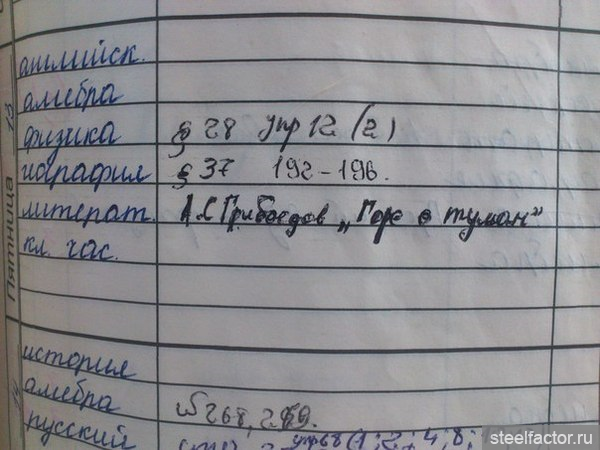 Пятница 13
английск.
алгебра
физика § 28 упр 12 (2)
география § 37 192-196.
литерат. А.С Грибоедов „Горе о туман"
кл. час.
история
алгебра № 268, 269.
русский упр 68 (1; 2; 4, 8;
steelfactor.ru